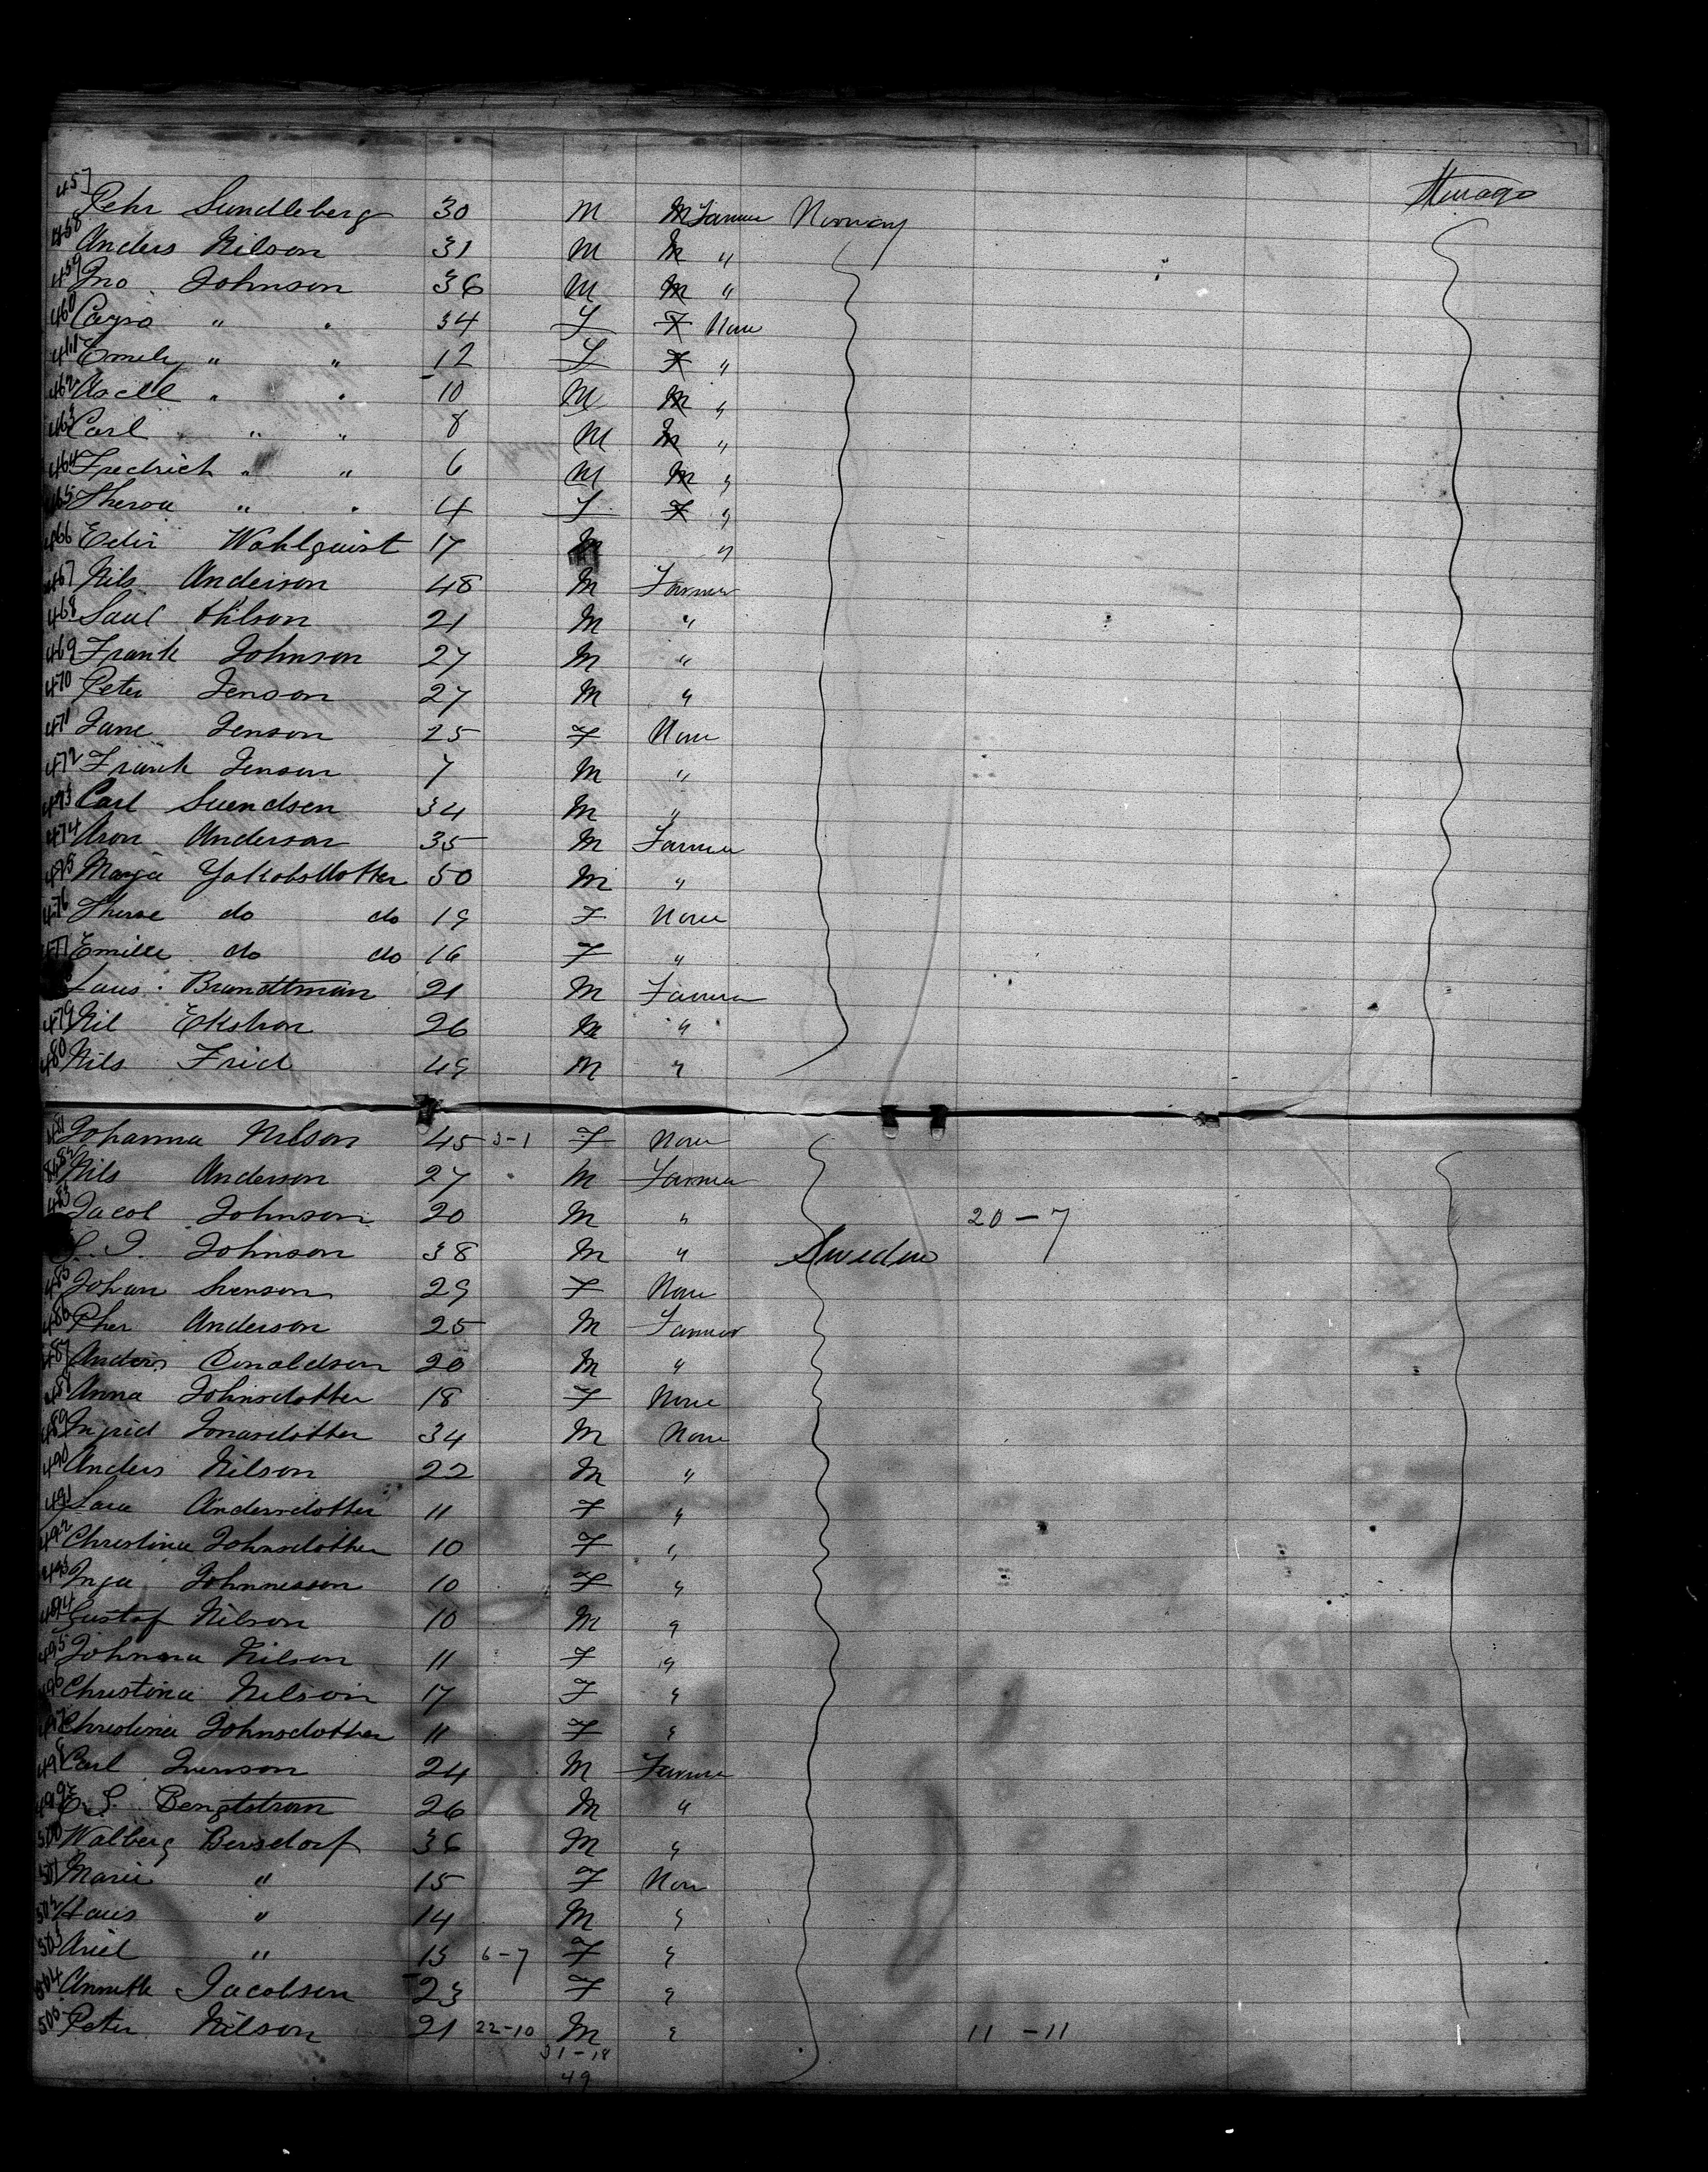 457 Pehr Sundleberg 30 M M Farmer Norway
458 Anders Nilson 31 M M "
459 Jno. Johnson 36 M M "
460 " " 34 F F None
461 Emily " " 12 F F "
462 Axell " " 10 M M "
463 Carl " " 8 M M "
464 Fredrich " " 6 M M "
465 " " 4 F F "
466 Wahlquist 17 M "
467 Nils Anderson 48 M Farmer
468 Nilson 21 M "
469 Frank Johnson 27 M "
470 Peter Jenson 27 M "
471 Jane Jenson 25 F None
472 Frank Jenson 7 M "
473 Carl Suendsen 34 M "
474 Aron Anderson 35 M Farmer
475 50 M "
476 do do 19 F None
477 Emilie do do 16 F "
Brandtman 21 M Farmer
479 Nil Ekstron 26 M "
480 Nils Frid 49 M "
481 Johanna Nilson 45 3-1 F None
482 Nils Anderson 27 M Farmer
483 Jacob Johnson 20 M " 20-7
Johnson 38 M " Sweden
485 Johan Svenson 29 F None
486 Pher Anderson 25 M Farmer
487 Anders 20 M "
488 Anna Johnsdotter 18 F None
489 Ingrid Jonasdotter 34 M None
490 Anders Nilson 22 M "
491 Andersdotter 11 F "
492 Christina Johnsdotter 10 F "
493 Inga Johnnesson 10 F "
494 Gustaf Nilson 10 M "
495 Johnna Nilson 11 F "
496 Christina Nilson 17 F "
497 Christina Johnsdotter 11 F "
498 Carl 24 M Farmer
499 Bengtstrom 26 M "
500 Walberg Bersdorf 36 M "
501 Marie " 15 F None
502 Hans " 14 M "
503 " 13 6-7 F "
504 Jacobsen 23 F "
505 Peter Nilson 21 22-10 M " 11-11
31-18
49